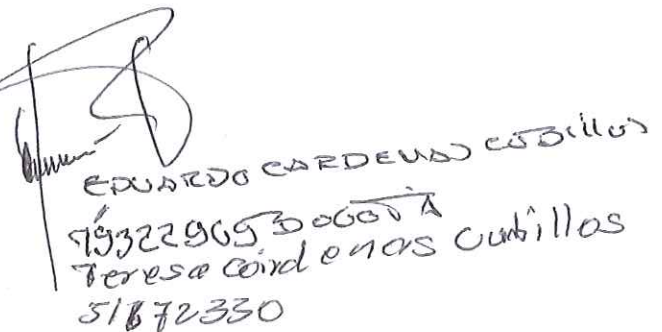 EDUARDO CARDENAS CUBILLOS
19322905 BOGOTA
Teresa Cardenas Cubillos
51672330